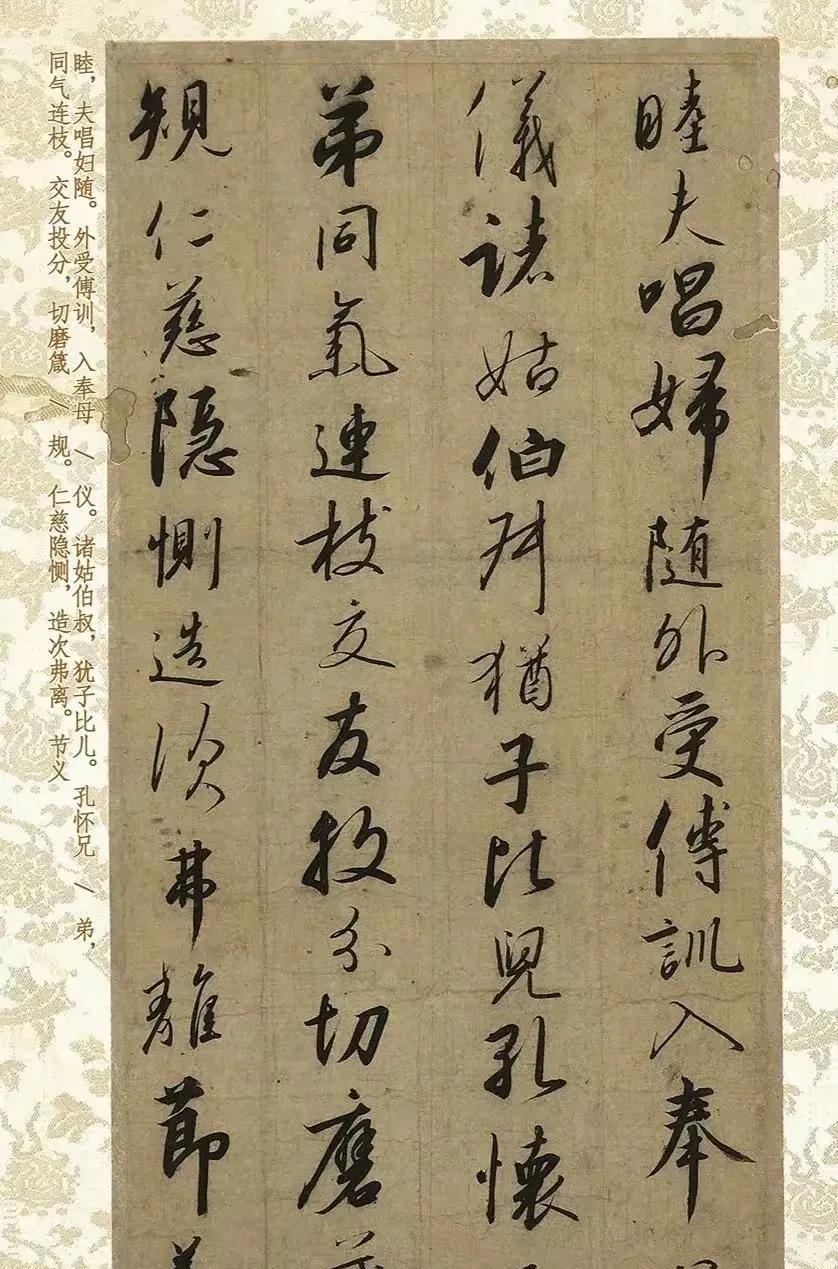 睦夫唱婦随外受傅訓入奉
儀諸姑伯叔猶子比兒孔懷
弟同氣連枝交友投分切磨
規仁慈隱惻造次弗離節
睦，夫唱妇随。外受傅训，入奉母 / 仪。诸姑伯叔，犹子比儿。孔怀兄 / 弟，
同气连枝。交友投分，切磨箴 / 规。仁慈隐恻，造次弗离。节义